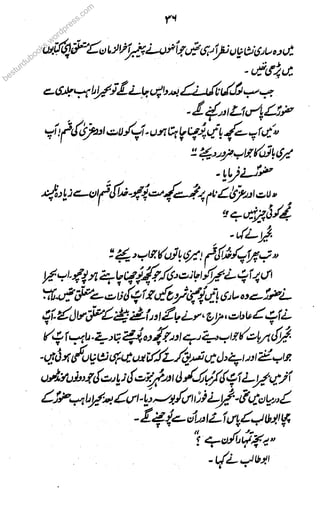 ۳۶
میں وہ ساری نشانیاں نظر آ رہی تھیں جو انھوں نے پیغمبر آخر الزماں کے متعلق اپنی کتابوں
میں پڑھی تھیں۔
جب سب لوگ کھانا کھانے کے بعد واپس جانے لگے تو بحیرا راہب جلدی سے
حضورؐ کے پاس آئے اور کہنے لگے۔
"میں آپ سے کچھ باتیں پوچھنا چاہتا ہوں۔ آپ کو لات اور عزیٰ کی قسم! آپ
میری باتوں کا جواب ضرور دیجئے"
حضورؐ نے فرمایا۔
"لات اور عزیٰ کے نام پر مجھ سے کچھ مت پوچھو۔ خدا کی قسم ان سے زیادہ ناپسند
مجھے کوئی چیز نہیں ہے"
بحیرا نے کہا۔
"تب پھر آپ کو خدا کی قسم! میری باتوں کا جواب دیجئے"
اس پر آپؐ نے بحیرا کو اجازت دی کہ جو کچھ پوچھنا چاہتے ہو پوچھو۔ اب بحیرا
نے حضورؐ سے وہ ساری باتیں پوچھنی شروع کیں جو آپؐ کی ذات سے متعلق تھیں۔ راہب
نے آپؐ کے عادات، مزاج، سونے جاگنے اور اٹھنے بیٹھنے کے متعلق سوال کئے۔ آپؐ
بحیرا کی ہر بات کا جواب دیتے رہے اور جو کچھ وہ پوچھتے بتا دیتے۔ راہب آپؐ کا
جواب سنتے اور اپنے دل میں تصدیق کرتے کہ کتابوں میں یہی نشانیاں لکھی ہوئی ہیں۔
آخر میں بحیرا نے آپؐ کی کمر مبارک کھولی اور مہر نبوت کی زیارت کی جو دونوں مونڈھوں
کے درمیان میں تھی۔ بحیرا نے فوراً اس کو بوسہ دیا۔ اس کے بعد بحیرا راہب حضورؐ کے
چچا ابو طالب کے پاس آئے اور ان سے پوچھنے لگے۔
"یہ بچہ تمہارا کون ہے؟"
ابو طالب نے کہا۔
besturdubooks.wordpress.com